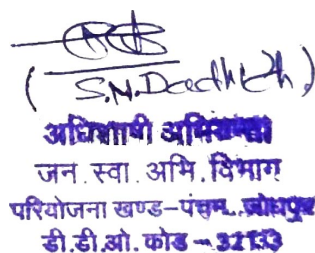 (S.N.Dadhich)
अधिशाषी अभियन्ता
जन.स्वा.अभि.विभाग
परियोजना खण्ड-पंचम, जोधपुर
डी.डी.ओ. कोड - 32133